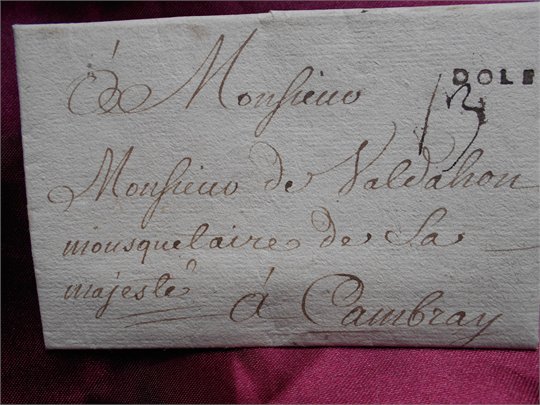 á Monsieur
DOLE
13
Monsieur de Valdahon
mousquetaire de Sa
majesté
á Cambray